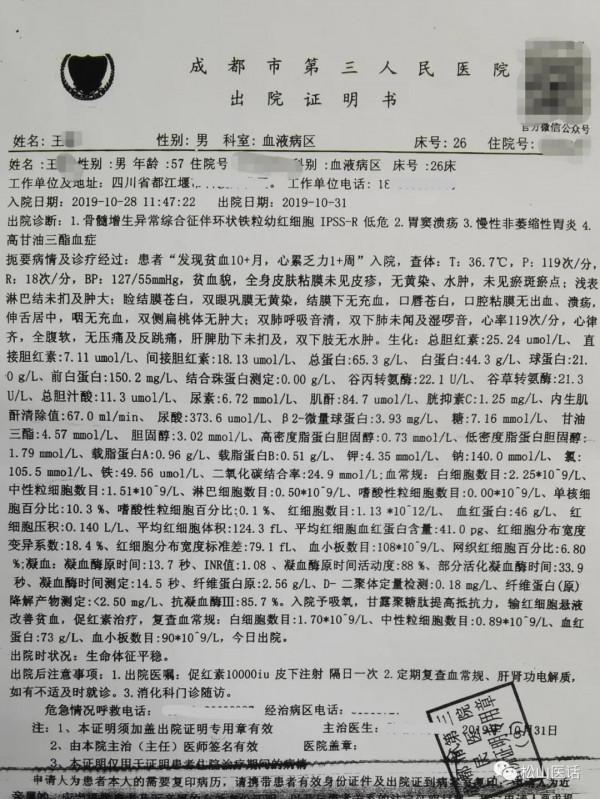 成都市第三人民医院
出院证明书
官方微信公众号
姓名:王 性别:男 科室:血液病区 床号:26 住院号:
姓名:王 性别:男 年龄:57 住院号 科别:血液病区 床号:26床
工作单位及地址:四川省都江堰 工作单位电话:18
入院日期:2019-10-28 11:47:22 出院日期:2019-10-31
出院诊断:1.骨髓增生异常综合征伴环状铁粒幼红细胞 IPSS-R 低危 2.胃窦溃疡 3.慢性非萎缩性胃炎 4.
高甘油三酯血症
扼要病情及诊疗经过:患者“发现贫血10+月,心累乏力1+周”入院,查体:T:36.7℃,P:119次/分,
R:18次/分,BP:127/55mmHg,贫血貌,全身皮肤粘膜未见皮疹,无黄染、水肿,未见淤斑瘀点;浅表
淋巴结未扪及肿大;睑结膜苍白,双眼巩膜无黄染,结膜下无充血,口唇苍白,口腔粘膜无出血、溃疡,
伸舌居中,咽无充血,双侧扁桃体无肿大;双肺呼吸音清,双下肺未闻及湿啰音,心率119次/分,心律
齐,全腹软,无压痛及反跳痛,肝脾肋下未扪及,双下肢无水肿。生化:总胆红素:25.24 umol/L、直
接胆红素:7.11 umol/L、间接胆红素:18.13 umol/L、 总蛋白:65.3 g/L、 白蛋白:44.3 g/L、球蛋白:21.
0 g/L、前白蛋白:150.2 mg/L、结合珠蛋白测定:0.00 g/L、 谷丙转氨酶:22.1 U/L、 谷草转氨酶:21.3
U/L、总胆汁酸:11.3 umol/L、 尿素:6.72 mmol/L、 肌酐:84.7 umol/L、胱抑素C:1.25 mg/L、内生肌
酐清除值:67.0 ml/min、 尿酸:373.6 umol/L、β2-微量球蛋白:3.93 mg/L、 糖:7.16 mmol/L、 甘油
三酯:4.57 mmol/L、 胆固醇:3.02 mmol/L、高密度脂蛋白胆固醇:0.73 mmol/L、低密度脂蛋白胆固醇:
1.79 mmol/L、载脂蛋白A:0.96 g/L、载脂蛋白B:0.51 g/L、 钾:4.35 mmol/L、 钠:140.0 mmol/L、 氯:
105.5 mmol/L、铁:49.56 umol/L、二氧化碳结合率:24.9 mmol/L;血常规:白细胞数目:2.25*10^9/L、
中性粒细胞数目:1.51*10^9/L、淋巴细胞数目:0.50*10^9/L、嗜酸性粒细胞数目:0.00*10^9/L、单核细
胞百分比:10.3 %、嗜酸性粒细胞百分比:0.1 %、 红细胞数目:1.13 *10^12/L、 血红蛋白:46 g/L、 红
细胞压积:0.140 L/L、平均红细胞体积:124.3 fL、平均红细胞血红蛋白含量:41.0 pg、红细胞分布宽度
变异系数:18.4 %、红细胞分布宽度标准差:79.1 fL、 血小板数目:108*10^9/L、网织红细胞百分比:6.80
%;凝血:凝血酶原时间:13.7 秒、INR值:1.08 、凝血酶原时间活动度:88 %、部分活化凝血酶时间:33.9
秒、凝血酶时间测定:14.5 秒、纤维蛋白原:2.56 g/L、D-二聚体定量检测:0.18 mg/L、纤维蛋白(原)
降解产物测定:<2.50 mg/L、抗凝血酶Ⅲ:85.7 %。入院予吸氧,甘露聚糖肽提高抵抗力,输红细胞悬液
改善贫血,促红素治疗,复查血常规:白细胞数目:1.70*10^9/L、中性粒细胞数目:0.89*10^9/L、血红
蛋白:73 g/L、血小板数目:90*10^9/L,今日出院。
出院时状况:生命体征平稳。
出院后注意事项:1.出院医嘱:促红素10000iu 皮下注射 隔日一次 2.定期复查血常规、肝肾功电解质,
如有不适及时就诊。3.消化科门诊随访。
危急情况呼救电话: 经治病区电话:
注:1、本证明须加盖出院证明专用章有效 主治医生: 2019年10月31日
2、由本院主治(主任)医师签名有效 医院盖章:
3、本证明仅用于证明患者住院诊疗期间的病情
申请人为患者本人的需要复印病历,请携带患者有效身份证件及出院证到病案 复印。 申请人为近
松山医话